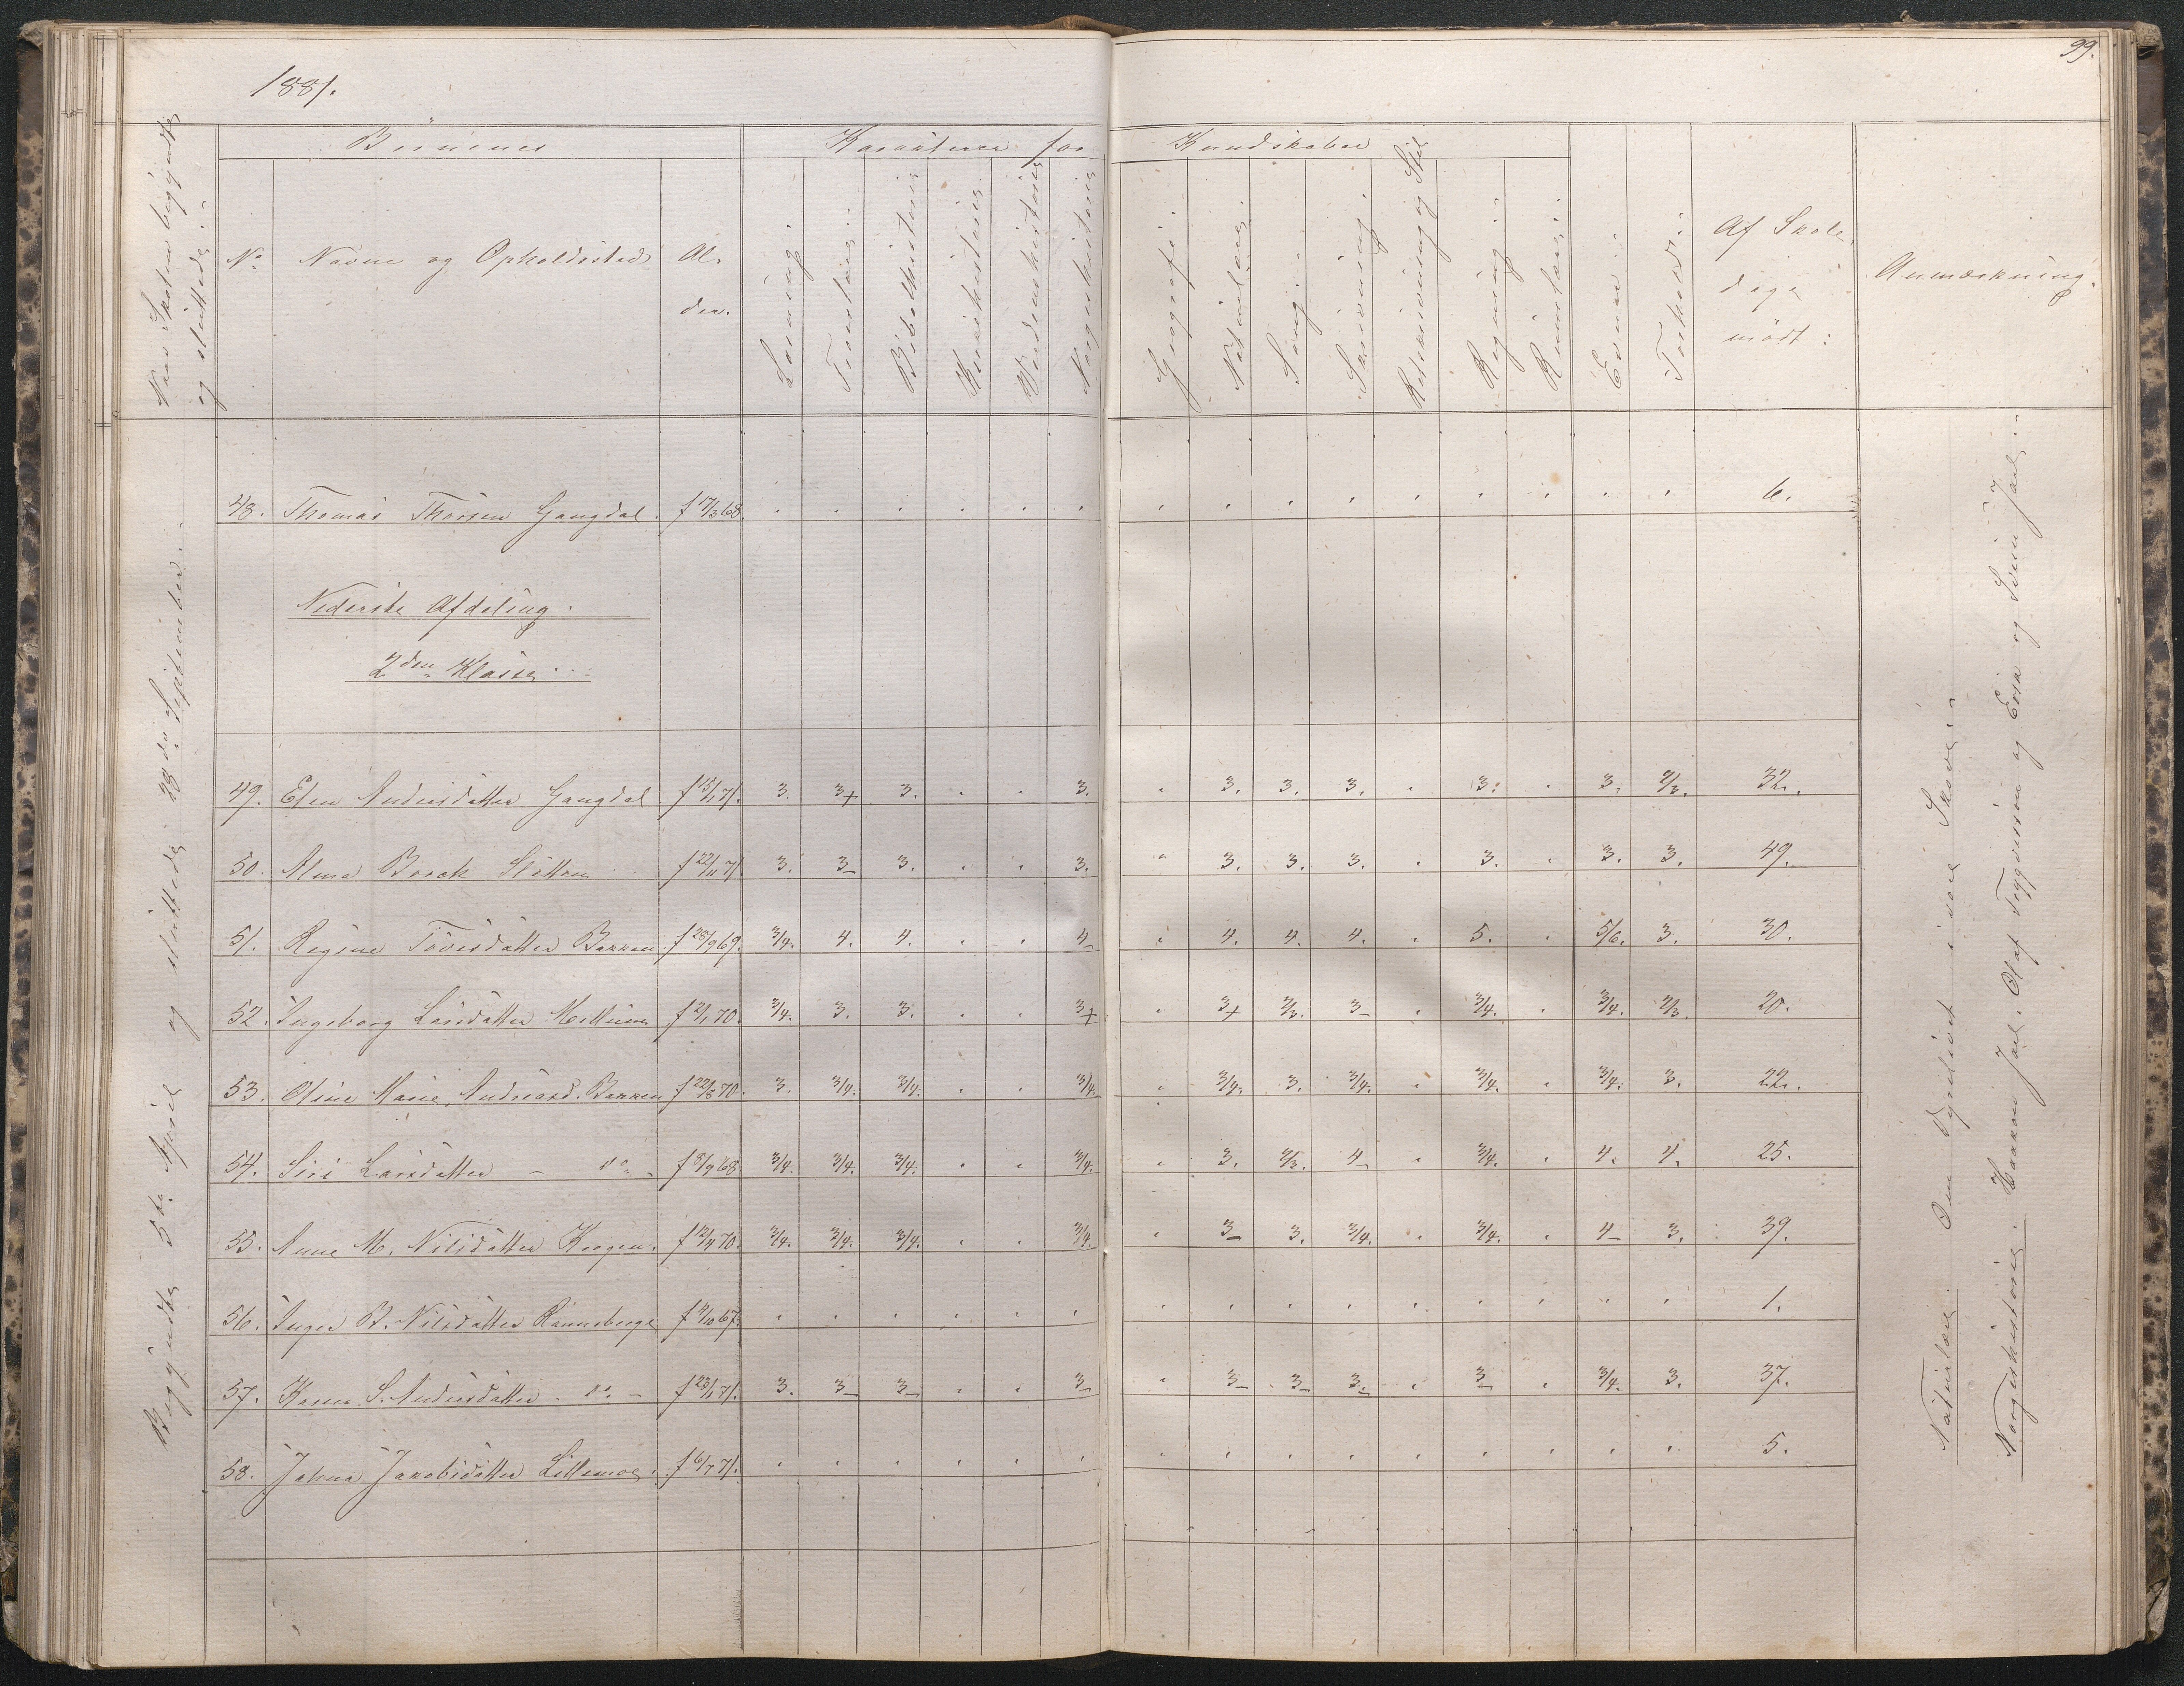 1881.
99.
Naar Skolen begyndte
og sluttede:
Börnenes
Karakterer for
Kundskaber
No
Navne og Opholdssted
Al-
der.
Læsning.
Troeslære.
Bibelhistorie
Kirkehistorie
Verdenshistorie
Norgeshistorie
Geografi.
Naturlære.
Sang.
Skrivning.
Retskrivning og Stil
Regning.
Rumlære.
Evner.
Forhold.
Af Skole-
dage
mödt:
Anmærkning.
Begyndte 5te April og sluttede 28de September.
48. Thomas Thorsen Gangdal. f 17/3 68. 6.
Nederste Afdeling.
2den Klasse.
49. Elen Andersdatter Gangdal f 15/1 71. 3. 3+ 3. 3. 3. 3. 3. 3. 3. 2/3. 32.
50. Alma Borch Sletten f 22/11 71. 3. 3- 3. 3. 3. 3. 3. 3. 3. 3. 49.
51. Regine Toresdatter Bakken f 28/9 69. 3/4. 4. 4. 4- 4. 4. 4. 5. 5/6. 3. 30.
52. Ingeborg Larsdatter Mellum f 2/1 70. 3/4. 3. 3. 3+ 3+ 2/3. 3- 3/4. 3/4. 2/3. 20.
53. Oline Marie Andreasd. Bakken f 22/8 70. 3. 3/4. 3/4. 3/4. 3/4. 3. 3/4. 3/4. 3/4. 3. 22.
54. Siri Larsdatter - do - f 8/9 68. 3/4. 3/4. 3/4. 3/4. 3. 2/3. 4- 3/4. 4. 4. 25.
55. Anne M. Nilsdatter Haagen. f 12/4 70. 3/4. 3/4. 3/4. 3/4. 3- 3. 3/4. 3/4. 4- 3. 39.
56. Inger B. Nilsdatter Rönneberge f 4/10 67. 1.
57. Karen S. Andersdatter - do - f 23/1 71. 3. 3- 3- 3- 3- 3- 3- 3- 3/4. 3. 37.
58. Jahna Jakobsdatter Lillemoe. f 6/7 71. 5.
Naturlære. Om Dyrelivet i vore Skove.
Norgeshistorie: Haakon Jarl. Olaf Tryggvesön og Erik og Svein Jarl.